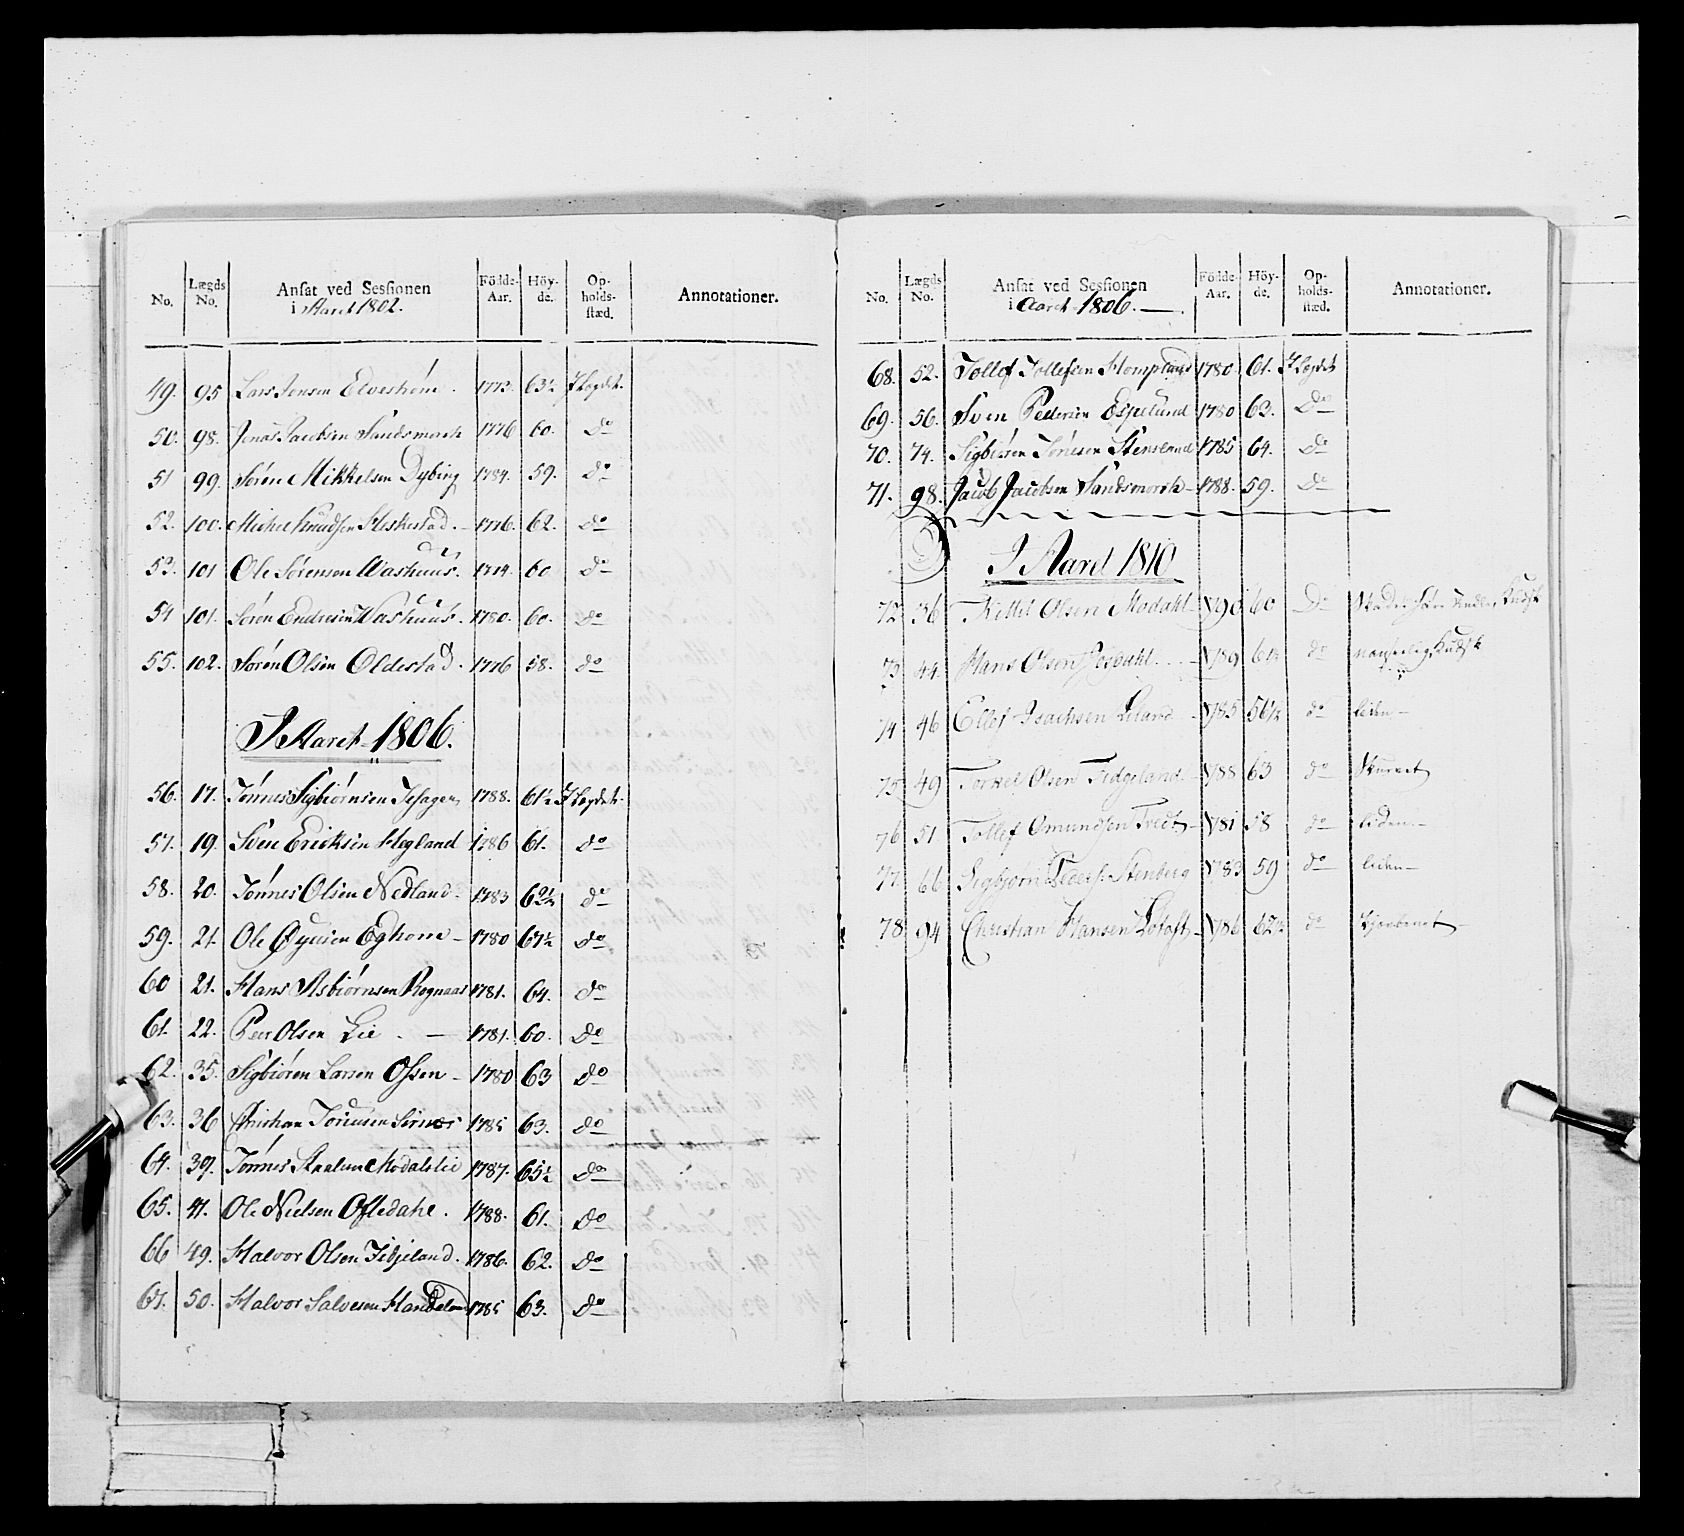 No. Lægds No. Ansat ved Sessionen i Aaret 1802. Födde-Aar. Höy-de. Op-holds-stæd. Annotationer.
49. 95 Lars Jonsen Elveström. 1773. 63½ I Legdet.
50. 98. Jonas Jacobsen Sandsmark 1776 60. do
51 99. Sören Mikkelsen Dybing 1784. 59. do
52. 100. Michel Knudsen Heskestad. 1776. 62. do
53. 101 Ole Sörensen Washuus. 1774. 60 do
54 101. Sören Endresen Washuus. 1780. 60. do
55. 102. Sören Olsen Oldestad. 1776 58. do
I Aaret 1806.
56. 17. Tönnes Sigbiörnsen 1788. 61½ I Legdet.
57. 19. Sven Eriksen Hegland 1786 61. do
58. 20. Tönnes Olsen Nedland. 1783 62½ do
59. 21. Ole Eghom 1780 61½ do
60 21. Hans Asbiörnsen Rognaas 1781. 64. do
61. 22. Peer Olsen Lie. 1781. 60. do
62. 35. Sigbiören Larsen Ossen 1780 63 do
63. 36 Christian Sirnes 1785 63. do
64. 39. Tönnes Modalslie 1787. 65½ do
65. 41. Ole Nielsen Ofledahl. 1788. 61. do
66 49. Halvor Olsen Fidjeland. 1786. 62. do
67. 50. Halvor Salvesen Handeland 1785 63. do
No. Lægds No. Ansat ved Sessionen i Aaret 1806. Födde-Aar. Höy-de. Op-holds-stæd. Annotationer.
68. 52. Tollef Tollefsen Hompland 1780. 61. I Legdet
69. 56. Sven Pedersen Espelund 1780 63. Do
70. 74. Sigbiörn Tönnesen Stensland 1785 64. Do
71. 98. Jacob Jacobsen Sandsmark 1788. 59. Do
I Aaret 1810
72 36 Kittel Olsen Modahl 1790 60 Do
73 44. Hans Olsen 1789 61½ do
74 46 Ellef Isachsen Liland 1785 56½ do liden
75 49 Torkel Olsen Fidjeland 1788 63 do
76 51. Tollef Omundsen Tredt 1781 58 do liden
77. 66 Sigbjörn Peders. Stenberg 1783 59 do liden
78. 94 Christian Hansen Lotoft 1786 62½ do